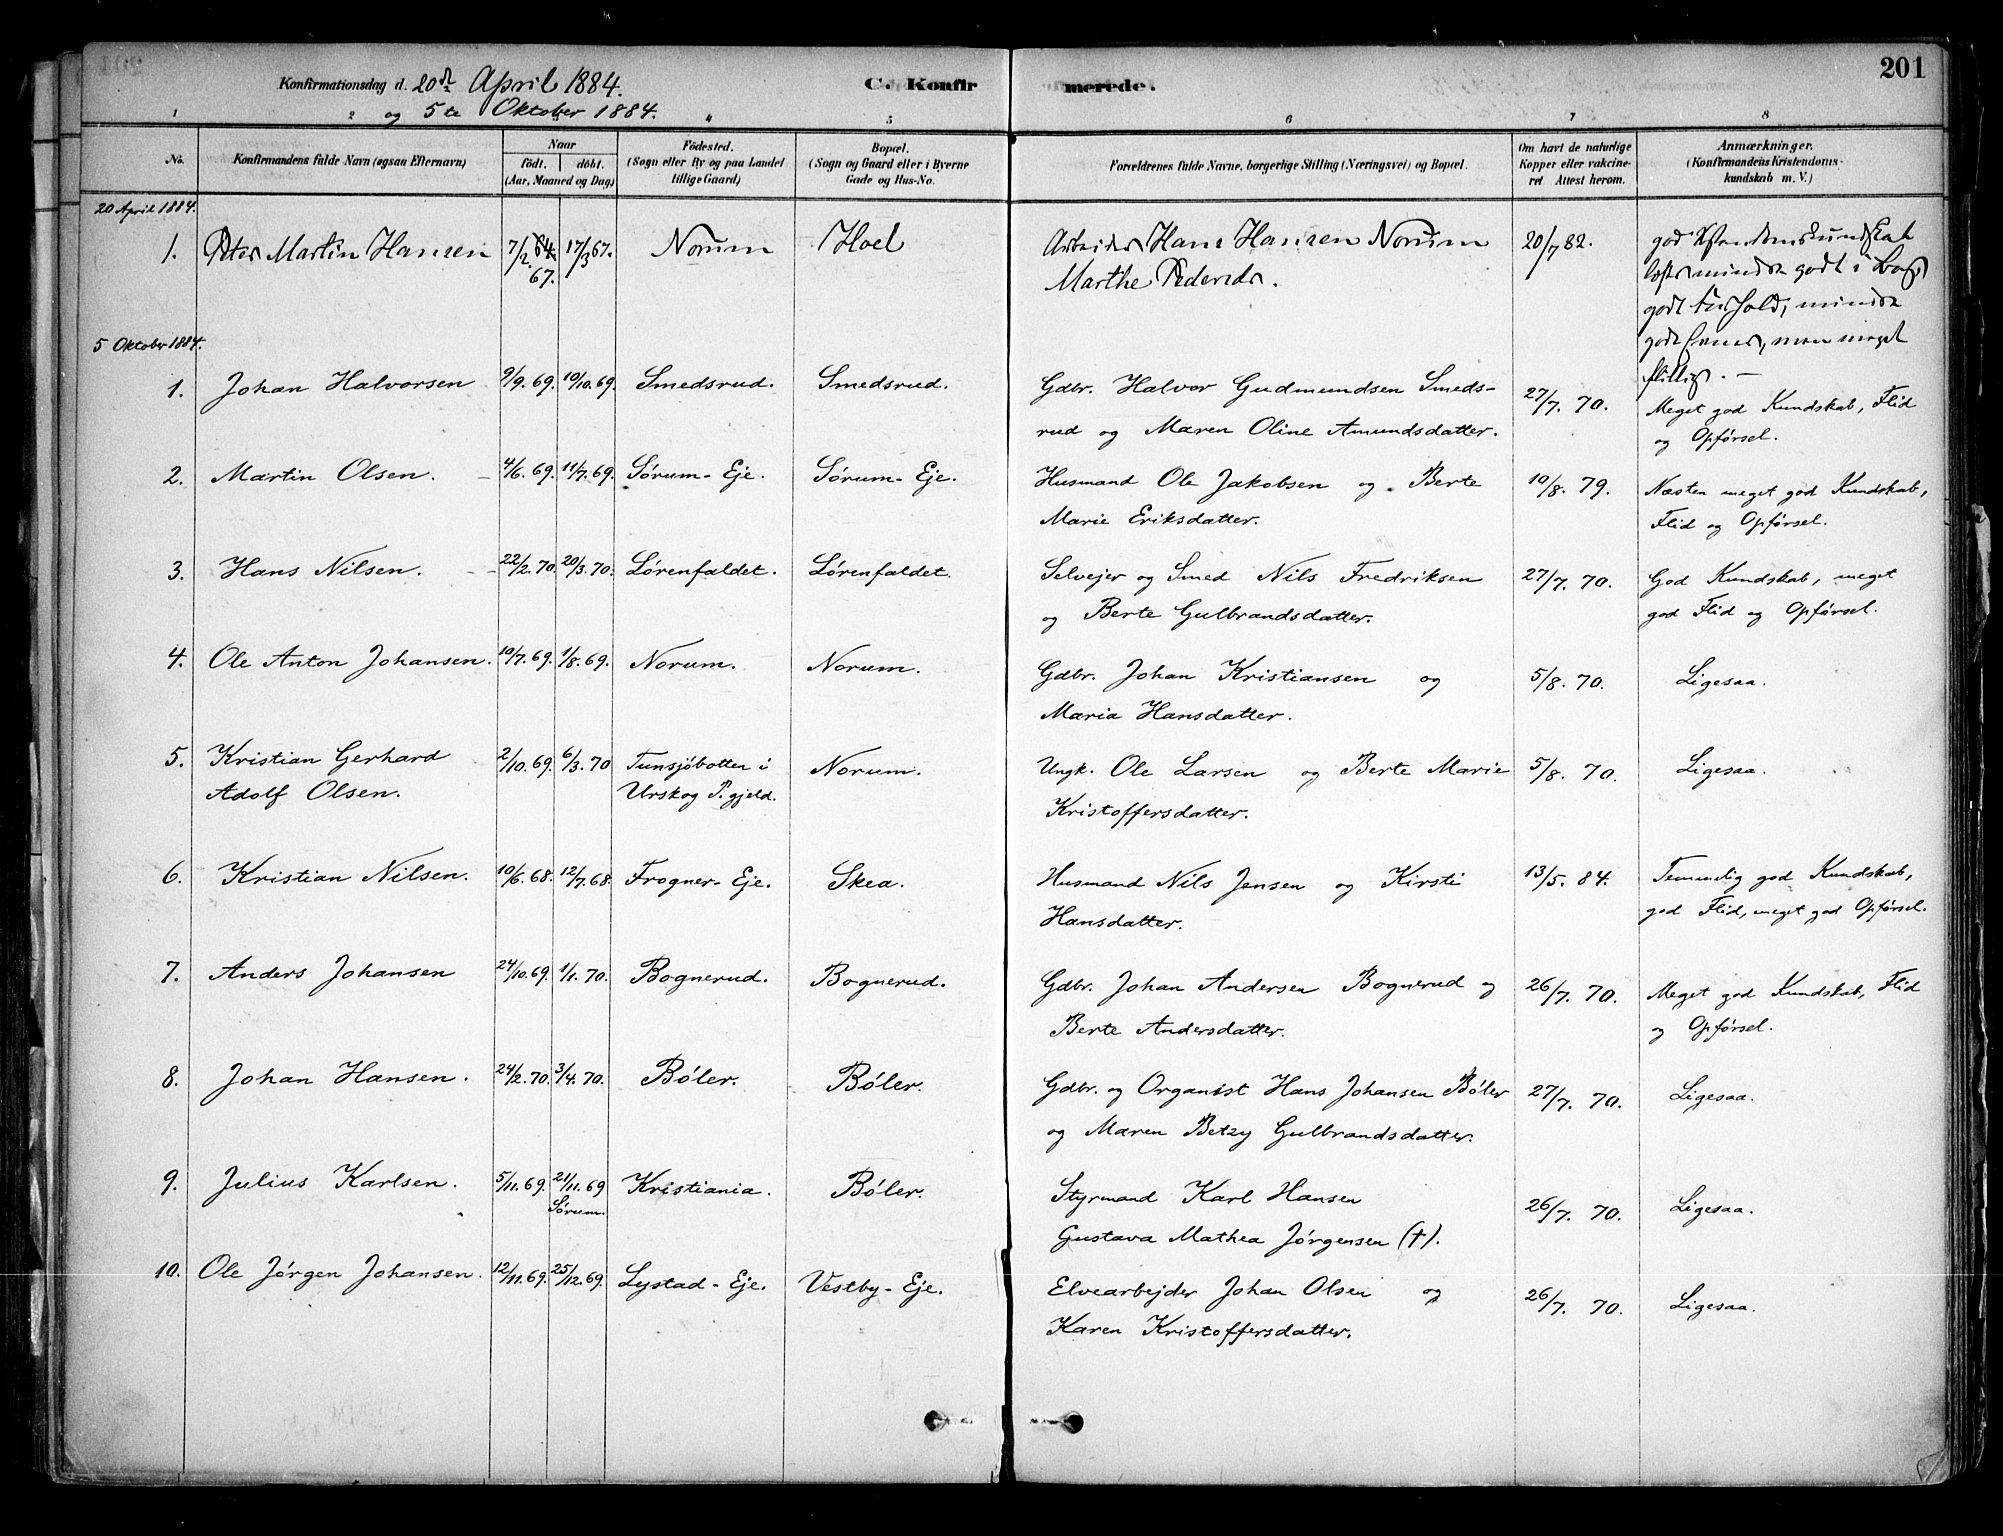 201
Konfirmationsdag d. 20de April 1884. C. Konfirmerede.
og 5te Oktober 1884.
1 2 3 4 5 6 7 8
No. Konfirmandens fulde Navn (ogsaa Efternavn) Naar født. døbt. (Aar, Maaned og Dag) Fødested. (Sogn eller By og paa Landet tillige Gaard) Bopæl. (Sogn og Gaard eller i Byerne Gade og Hus-No. Forældrenes fulde Navne, borgerlige Stilling (Næringsvei) og Bopæl. Om havt de naturlige Kopper eller vakcineret Attest herom. Anmærkninger. (Konfirmandens Kristendomskundskab m. V.)
20 April 1884.
1. Peter Martin Hansen 7/2 64. 67. 17/3 67. Norum Hoel Arbeider Hans Hansen Norum 20/7 82. god
Marthe Pedersd. mindre godt i
godt Forhold, mindre
gode men meget
flittig. —
5 Oktober 1884.
1. Johan Halvorsen 9/9. 69. 10/10. 69. Smedsrud. Smedsrud. Gdbr. Halvor Gudmundsen Smeds- 27/7. 70. Meget god Kundskab, Flid
rud og Maren Oline Amundsdatter. og Opførsel.
2. Martin Olsen. 4/6. 69. 11/7. 69. Sørum-Eje. Sørum-Eje. Husmand Ole Jakobsen og Berte 10/8. 79. Næsten meget god Kundskab,
Marie Eriksdatter. Flid og Opførsel.
3. Hans Nilsen. 22/2. 70. 20/3. 70. Lørenfaldet. Lørenfaldet. Selvejer og Smed Nils Fredriksen 27/7. 70. God Kundskab, meget
og Berte Gulbrandsdatter. god Flid og Opførsel.
4. Ole Anton Johansen. 10/7. 69. 1/8. 69. Norum. Norum. Gdbr. Johan Kristiansen og 5/8. 70. Ligesaa.
Maria Hansdatter.
5. Kristian Gerhard 2/10. 69. 6/3. 70 Tunsjøbotten i Norum. Ungk. Ole Larsen og Berte Marie 5/8. 70. Ligesaa.
Adolf Olsen. Urskog P.gjeld. Kristoffersdatter.
6. Kristian Nilsen. 10/6. 68. 12/7. 68. Frogner-Eje. Skea. Husmand Nils Jensen og Kirsti 13/5. 84. Temmelig god Kundskab,
Hansdatter. god Flid, meget god Opførsel.
7. Anders Johansen 24/10. 69. 1/1. 70. Bognerud. Bognerud. Gdbr. Johan Andersen Bognerud og 26/7. 70. Meget god Kundskab, Flid
Berte Andersdatter. og Opførsel.
8. Johan Hansen. 24/2. 70. 3/4. 70. Bøler. Bøler. Gdbr. og Organist Hans Johansen Bøler 27/7. 70. Ligesaa.
og Maren Betzy Gulbrandsdatter.
9. Julius Karlsen. 5/11. 69. 21/11. 69 Sørum. Kristiania. Bøler. Styrmand Karl Hansen 26/7. 70. Ligesaa.
Gustava Mathea Jørgensen (†).
10. Ole Jørgen Johansen. 12/11. 69. 25/12. 69. Lystad-Eje. Vestby-Eje. Elvearbejder Johan Olsen og 26/7. 70. Ligesaa.
Karen Kristoffersdatter.